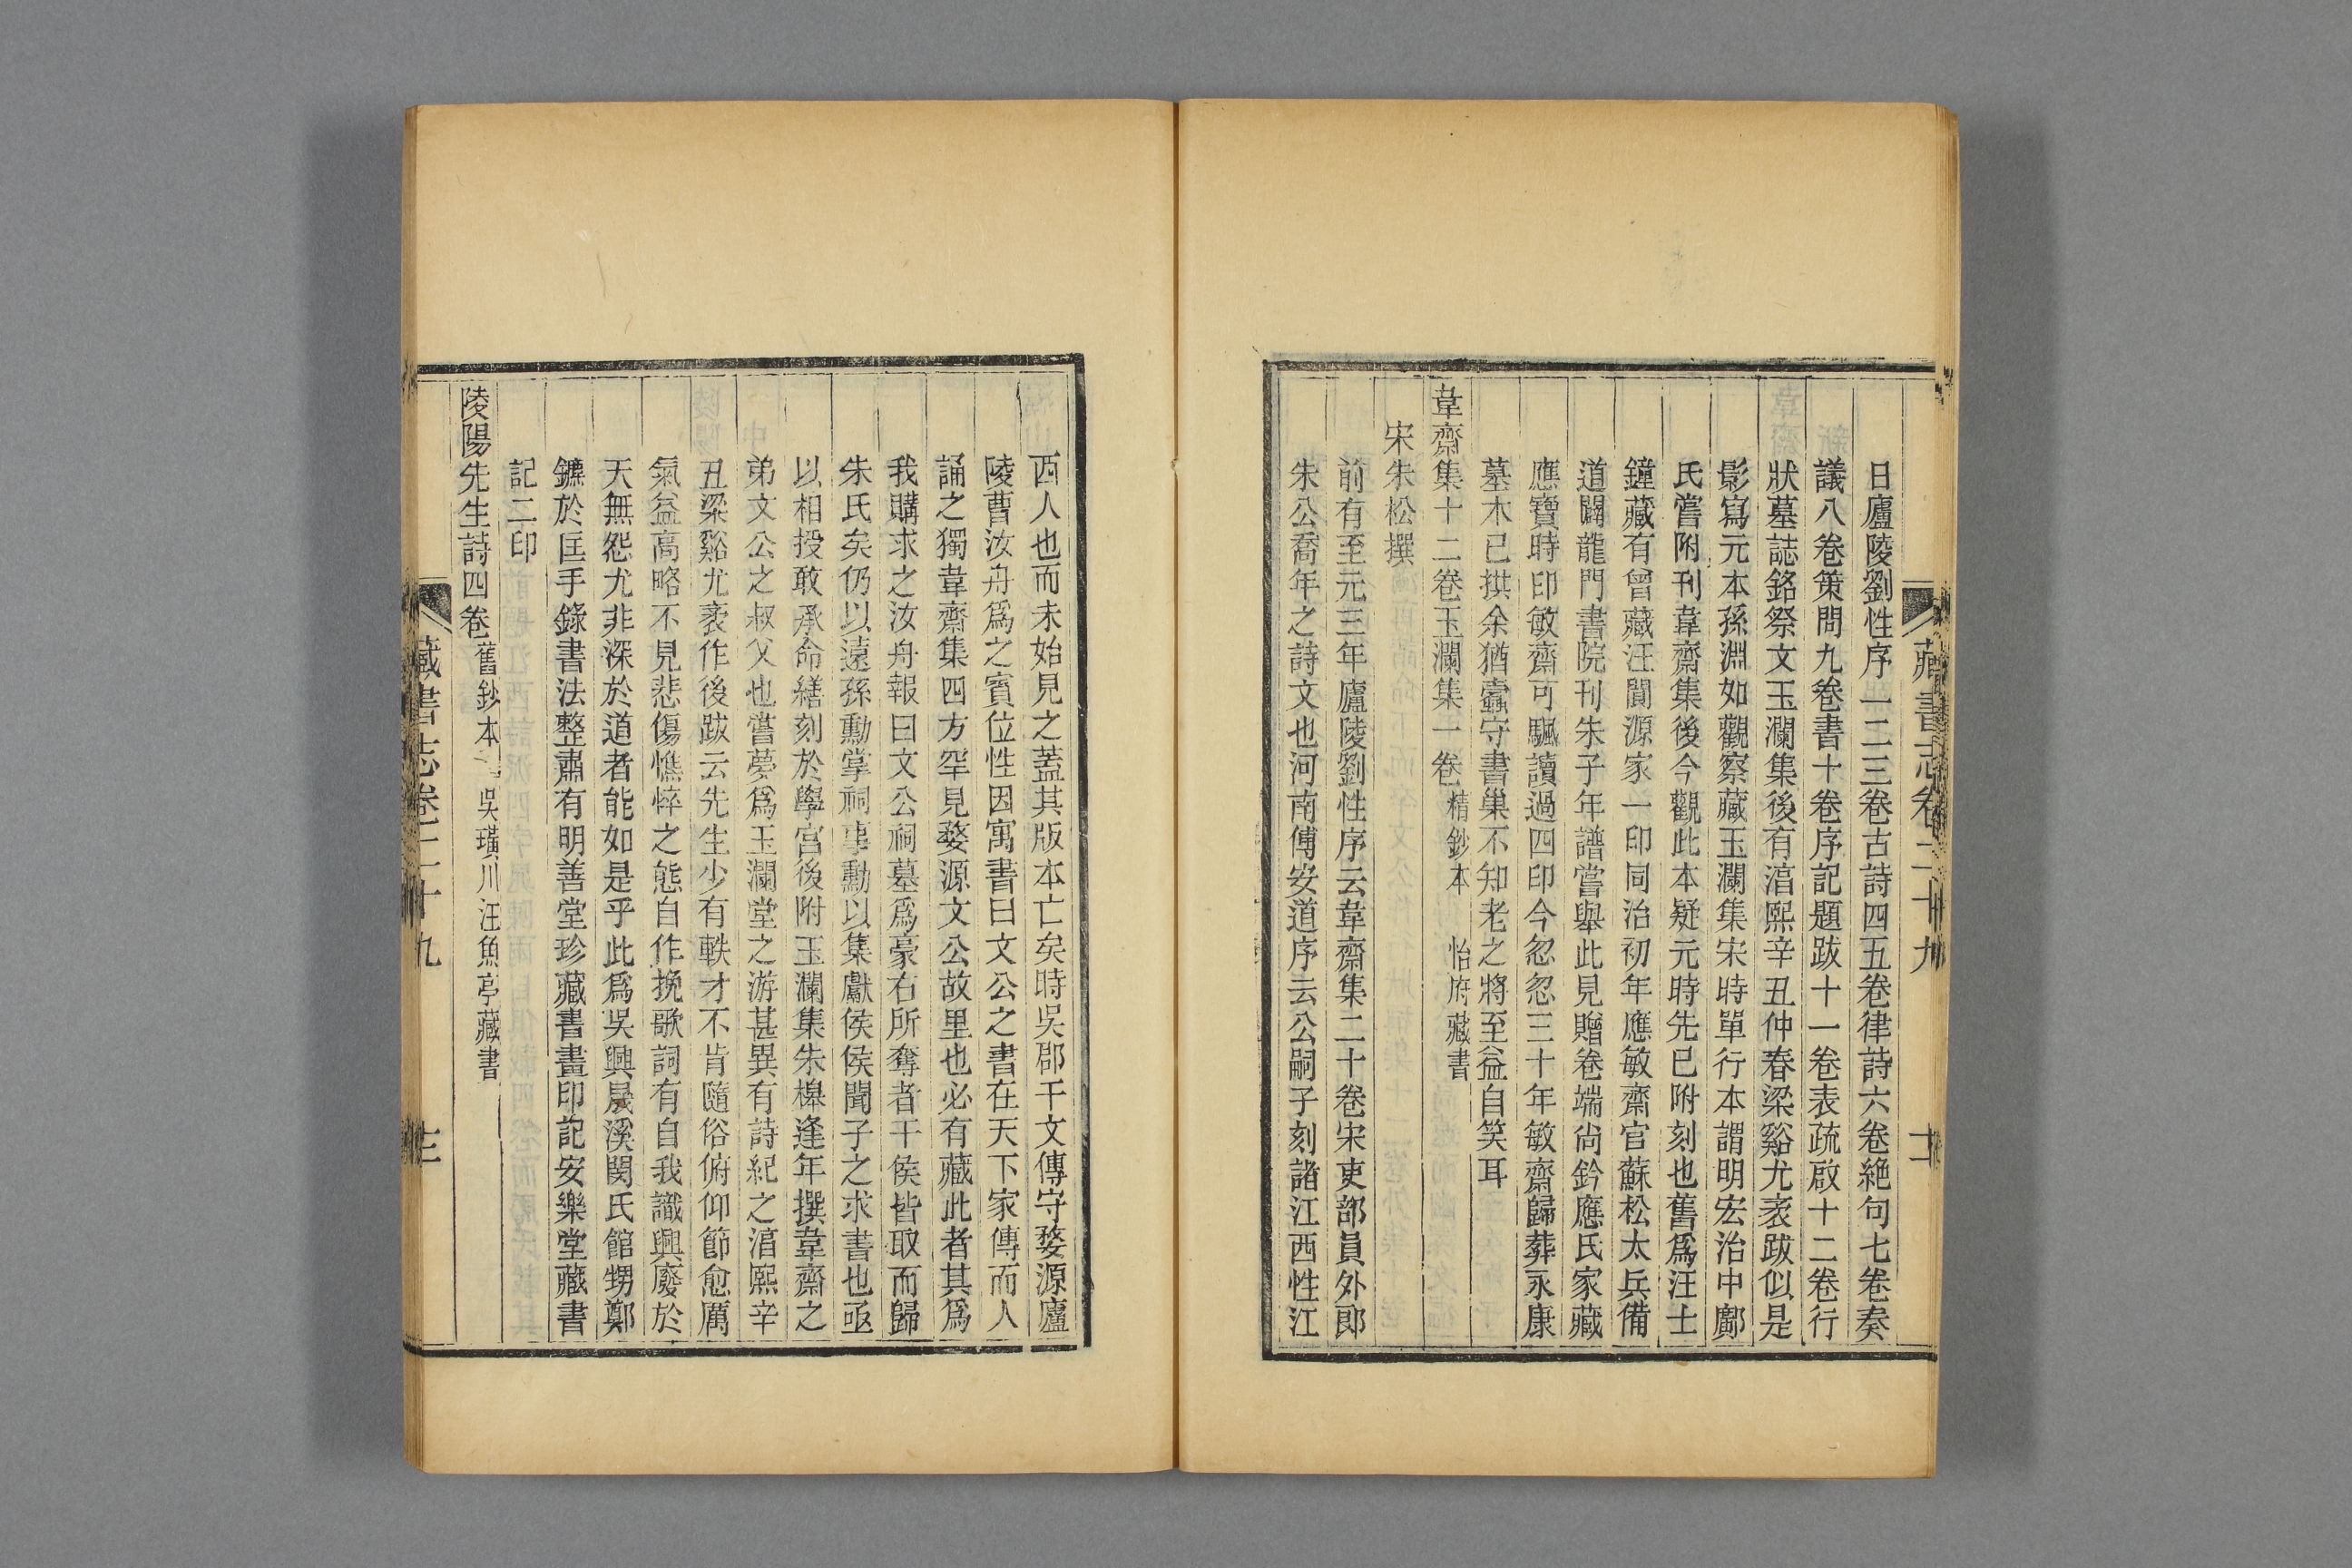 藏書志卷二十九
日廬陵劉性序一二三卷古詩四五卷律詩六卷絕句七卷奏
議八卷策問九卷書十卷序記題跋十一卷表疏啟十二卷行
狀墓誌銘祭文玉瀾集後有淳熙辛丑仲春梁谿尤袤跋似是
影寫元本孫淵如觀察藏玉瀾集宋時單行本謂明宏治中鄺
氏嘗附刊韋齋集後今觀此本疑元時先已附刻也舊為汪士
鐘藏有曾藏汪閬源家一印同治初年應敏齋官蘇松太兵備
道闢龍門書院刊朱子年譜嘗舉此見贈卷端尚鈐應氏家藏
應寶時印敏齋可颿讀過四印今忽忽三十年敏齋歸葬永康
墓木已拱余猶蠹守書巢不知老之將至益自笑耳
韋齋集十二卷玉瀾集一卷精鈔本 怡府藏書
宋朱松撰
前有至元三年廬陵劉性序云韋齋集二十卷宋吏部員外郎
朱公喬年之詩文也河南傅安道序云公嗣子刻諸江西性江
西人也而未始見之蓋其版本亡矣時吳郡干文傳守婺源廬
陵曹汝舟為之賓位性因寓書曰文公之書在天下家傳而人
誦之獨韋齋集四方罕見婺源文公故里也必有藏此者其為
我購求之汝舟報曰文公祠墓為豪右所奪者干侯皆取而歸
朱氏矣仍以遠孫勳掌祠事勳以集獻侯侯聞子之求書也亟
以相授敢承命繕刻於學宮後附玉瀾集朱槔逢年撰韋齋之
弟文公之叔父也嘗夢為玉瀾堂之游甚異有詩紀之淳熙辛
丑梁谿尤袤作後跋云先生少有軼才不肯隨俗俯仰節愈厲
氣益高略不見悲傷憔悴之態自作挽歌詞有自我識興廢於
天無怨尤非深於道者能如是乎此為吳興晟溪閔氏館甥鄭
鑣於匡手錄書法整肅有明善堂珍藏書畫印記安樂堂藏書
記二印
陵陽先生詩四卷舊鈔本 吳璜川汪魚亭藏書
藏書志卷二十九